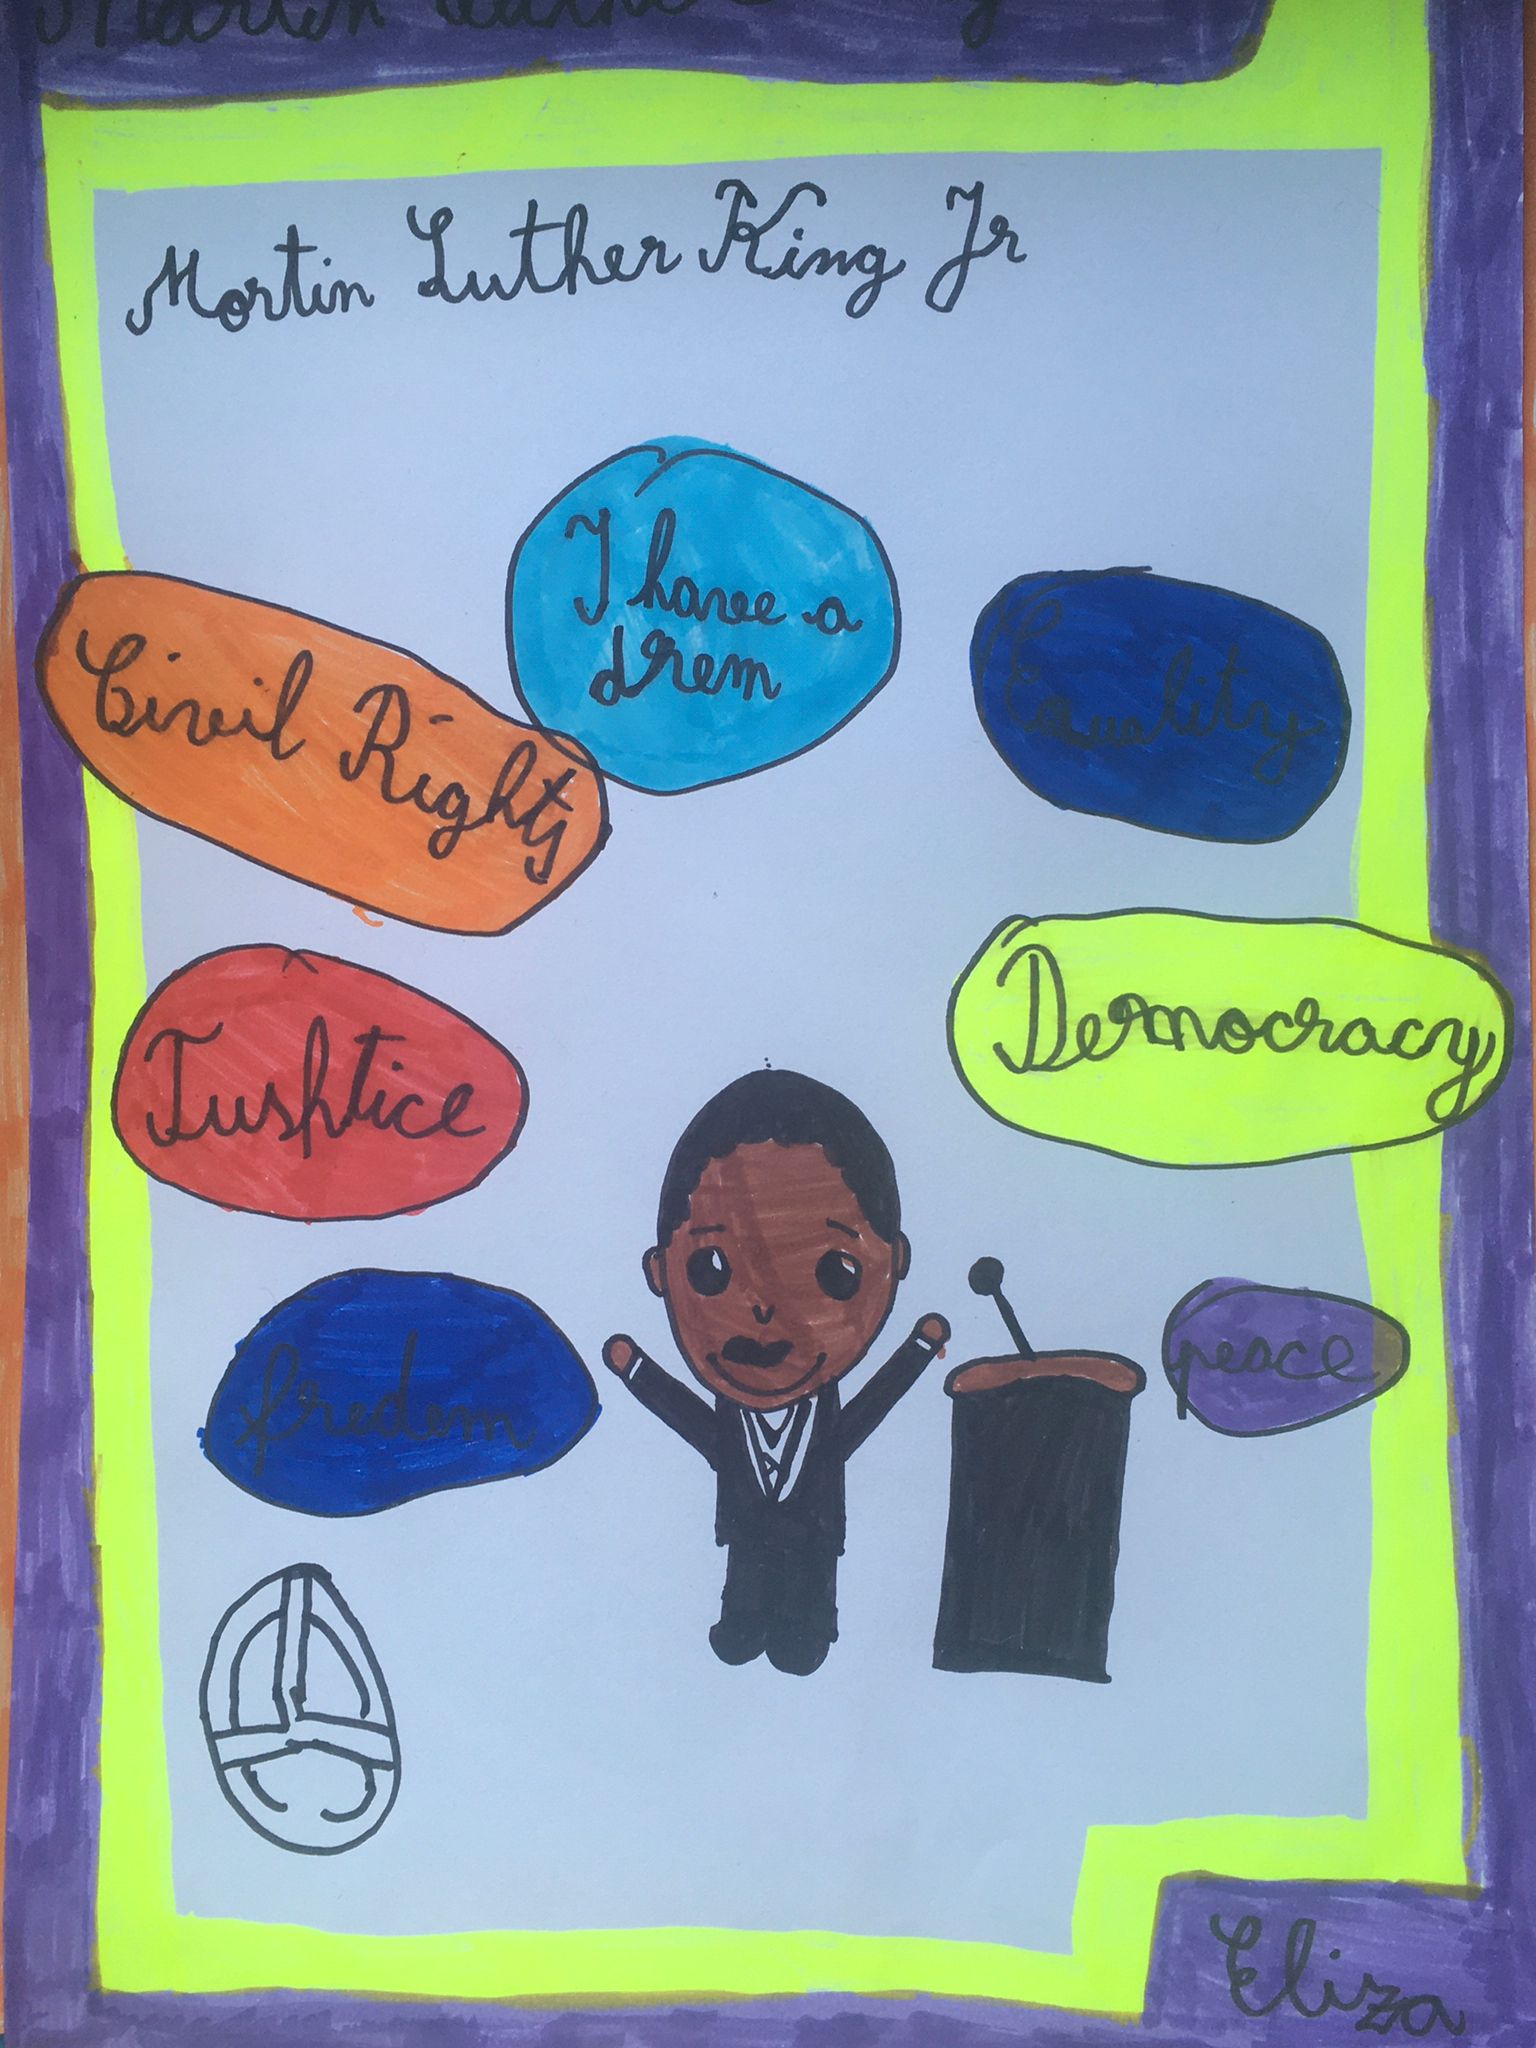 Martin Luther King
Mortin Luther King Jr
I have a
drem
Civil Rights
Equality
Democracy
Jushtice
fredem
peace
Eliza